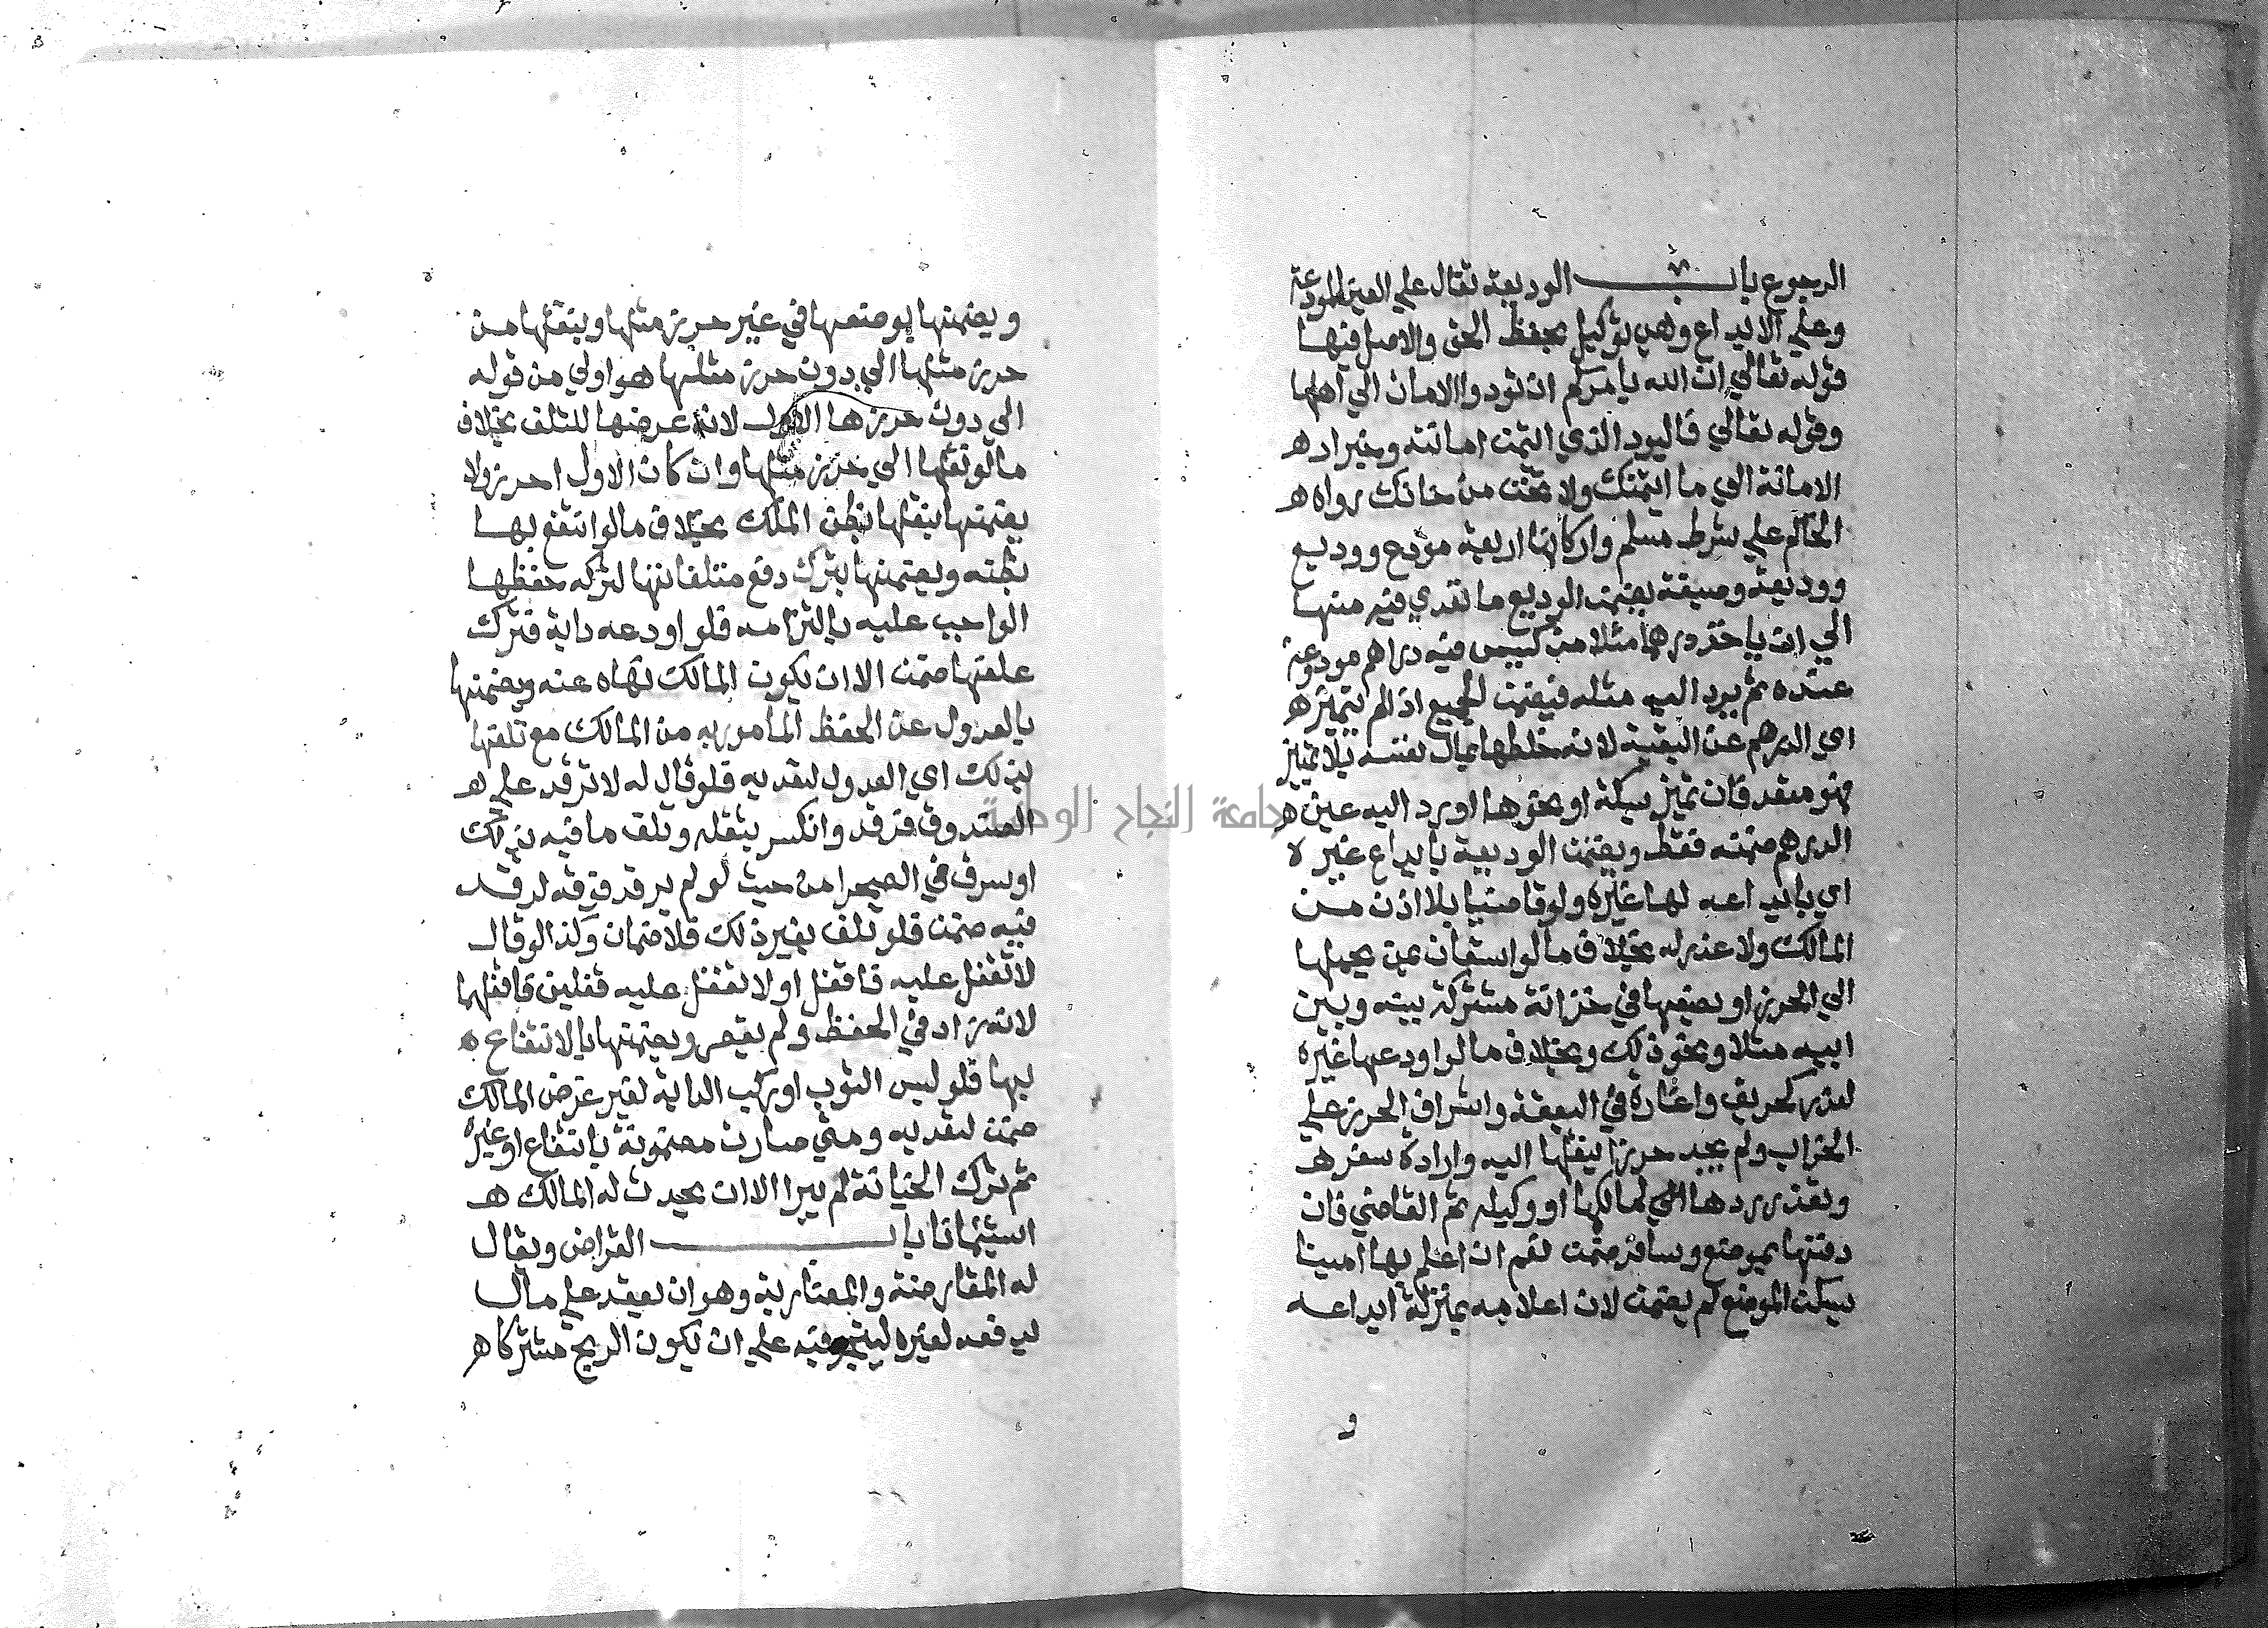 الرجوع باب الوديعة تقال علي العين المودعة
وعلي الايداع وهي توكيل بحفظ الحق والاصل فيها
قوله تعالي ان الله يامركم ان تودوا الامانات الي اهلها
وقوله تعالي فاليود الذي اؤتمن امانته وخبر اد ه
الامانة الي ما ايتمنك ولا تخن من خانك رواه ه
الحاكم علي شرط مسلم واركانها اربعة مودع ووديع
ووديعة وصيغة يضمن الوديع ما تعدي فيه منها
الي ان ياخذ درهما مثلا من كيس فيه دراهم مودوعة
عنده ثم يرد اليه مثله فيضمن الجميع اذ الم يتميز ه
اي الدرهم عن البقية لانه خلطها بمال نفسه بلا تمييز
فهو متعد فان تميز بسكة او نحوها او رد اليه عين ه
الدرهم ضمنه فقط ويضمن الوديعة بايداع غير لا
اي بايداعه لها غيره ولو قاضيا بلا اذن من
المالك ولا عذر له بخلاف مالو استعان بمن يحملها
الي الحرز او يضعها في خزانة مشتركة بينه وبين
ابيه مثلا ونحو ذلك وبخلاف مالو اودعها غيره
لعذر كحريق واغارة في البقعة واشراف الحرز علي
الخراب ولم يجد حرزا ينقلها اليه وارادة سفر ه
وتعذر ردها الي لمالكها او وكيله ثم القاضي فان
دفنها بموضع وسافر ضمن نعم ان اعلم بها امينا
يسكن الموضع لم يضمن لان اعلامه بمنزلة ايداعه
و
ويضمنها بوضعها في غير حرز مثلها وبنقلها من
حرز مثلها الي دون حرز مثلها هو اولي من قوله
الي دون حرزها الاول لانه عرضها للتلف بخلاف
مالو نقلها الي حرز مثلها وان كان الاول احرز ولا
يضمنها بنقلها بظن الملك بخلاف مالو انتفع بها
بظنه ويضمنها بترك دفع متلفاتها لتركه حفظها
الواجب عليه بالتزامه فلو اودعه دابة فترك
علفها ضمن الا ان يكون المالك نهاه عنه ويضمنها
بالعدول عن الحفظ المامور به من المالك مع تلفها
بذلك اي العدول لتعديه فلو قال له لا ترقد علي ه
الصندوق فرقد وانكسر بثقله وتلف ما فيه بذلك
او سرق في الصحرا من حيث لو لم يرقد فوقه لرقد
فيه ضمن فلو تلف بغير ذلك فلا ضمان وكذا لو قال
لا تقفل عليه فاقفل او لا تقفل عليه قفلين فاقفلهما
لانه زاد في الحفظ ولم يقصر ويضمنها بالانتفاع ه
بها فلو لبس الثوب او ركب الدابة لغير غرض المالك
ضمن لتعديه ومتي صارت مضمونة بانتفاع او غيره
ثم ترك الخيانة لم يبرا الا ان يحدث له المالك ه
استيمانا باب القراض ويقال
له المقارضة والمضاربة وهو ان يعقد علي مال
يدفعه لغيره ليتجر فيه علي ان يكون الربح مشتركا ه
جامعة النجاح الوطنية